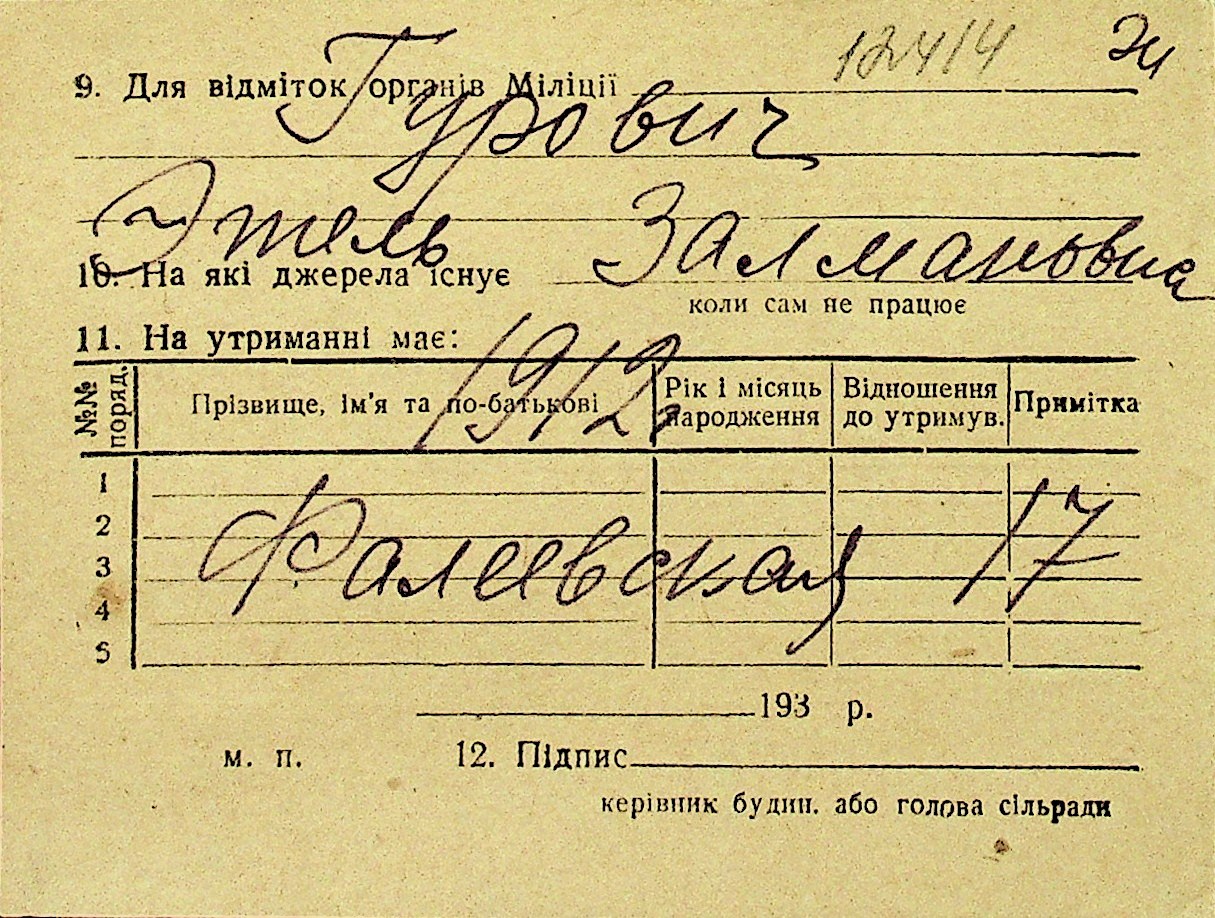 12414 Эт
9. Для відміток органів Міліції
Гурович
Этель Залмановна
10. На які джерела існує
коли сам не працює
11. На утриманні має:
1912
№№ поряд. Прізвище, ім'я та по-батькові Рік і місяць народження Відношення до утримув. Примітка
1
2
Фалеевская 17
3
4
5
193 р.
м. п. 12. Підпис
керівник будин. або голова сільради